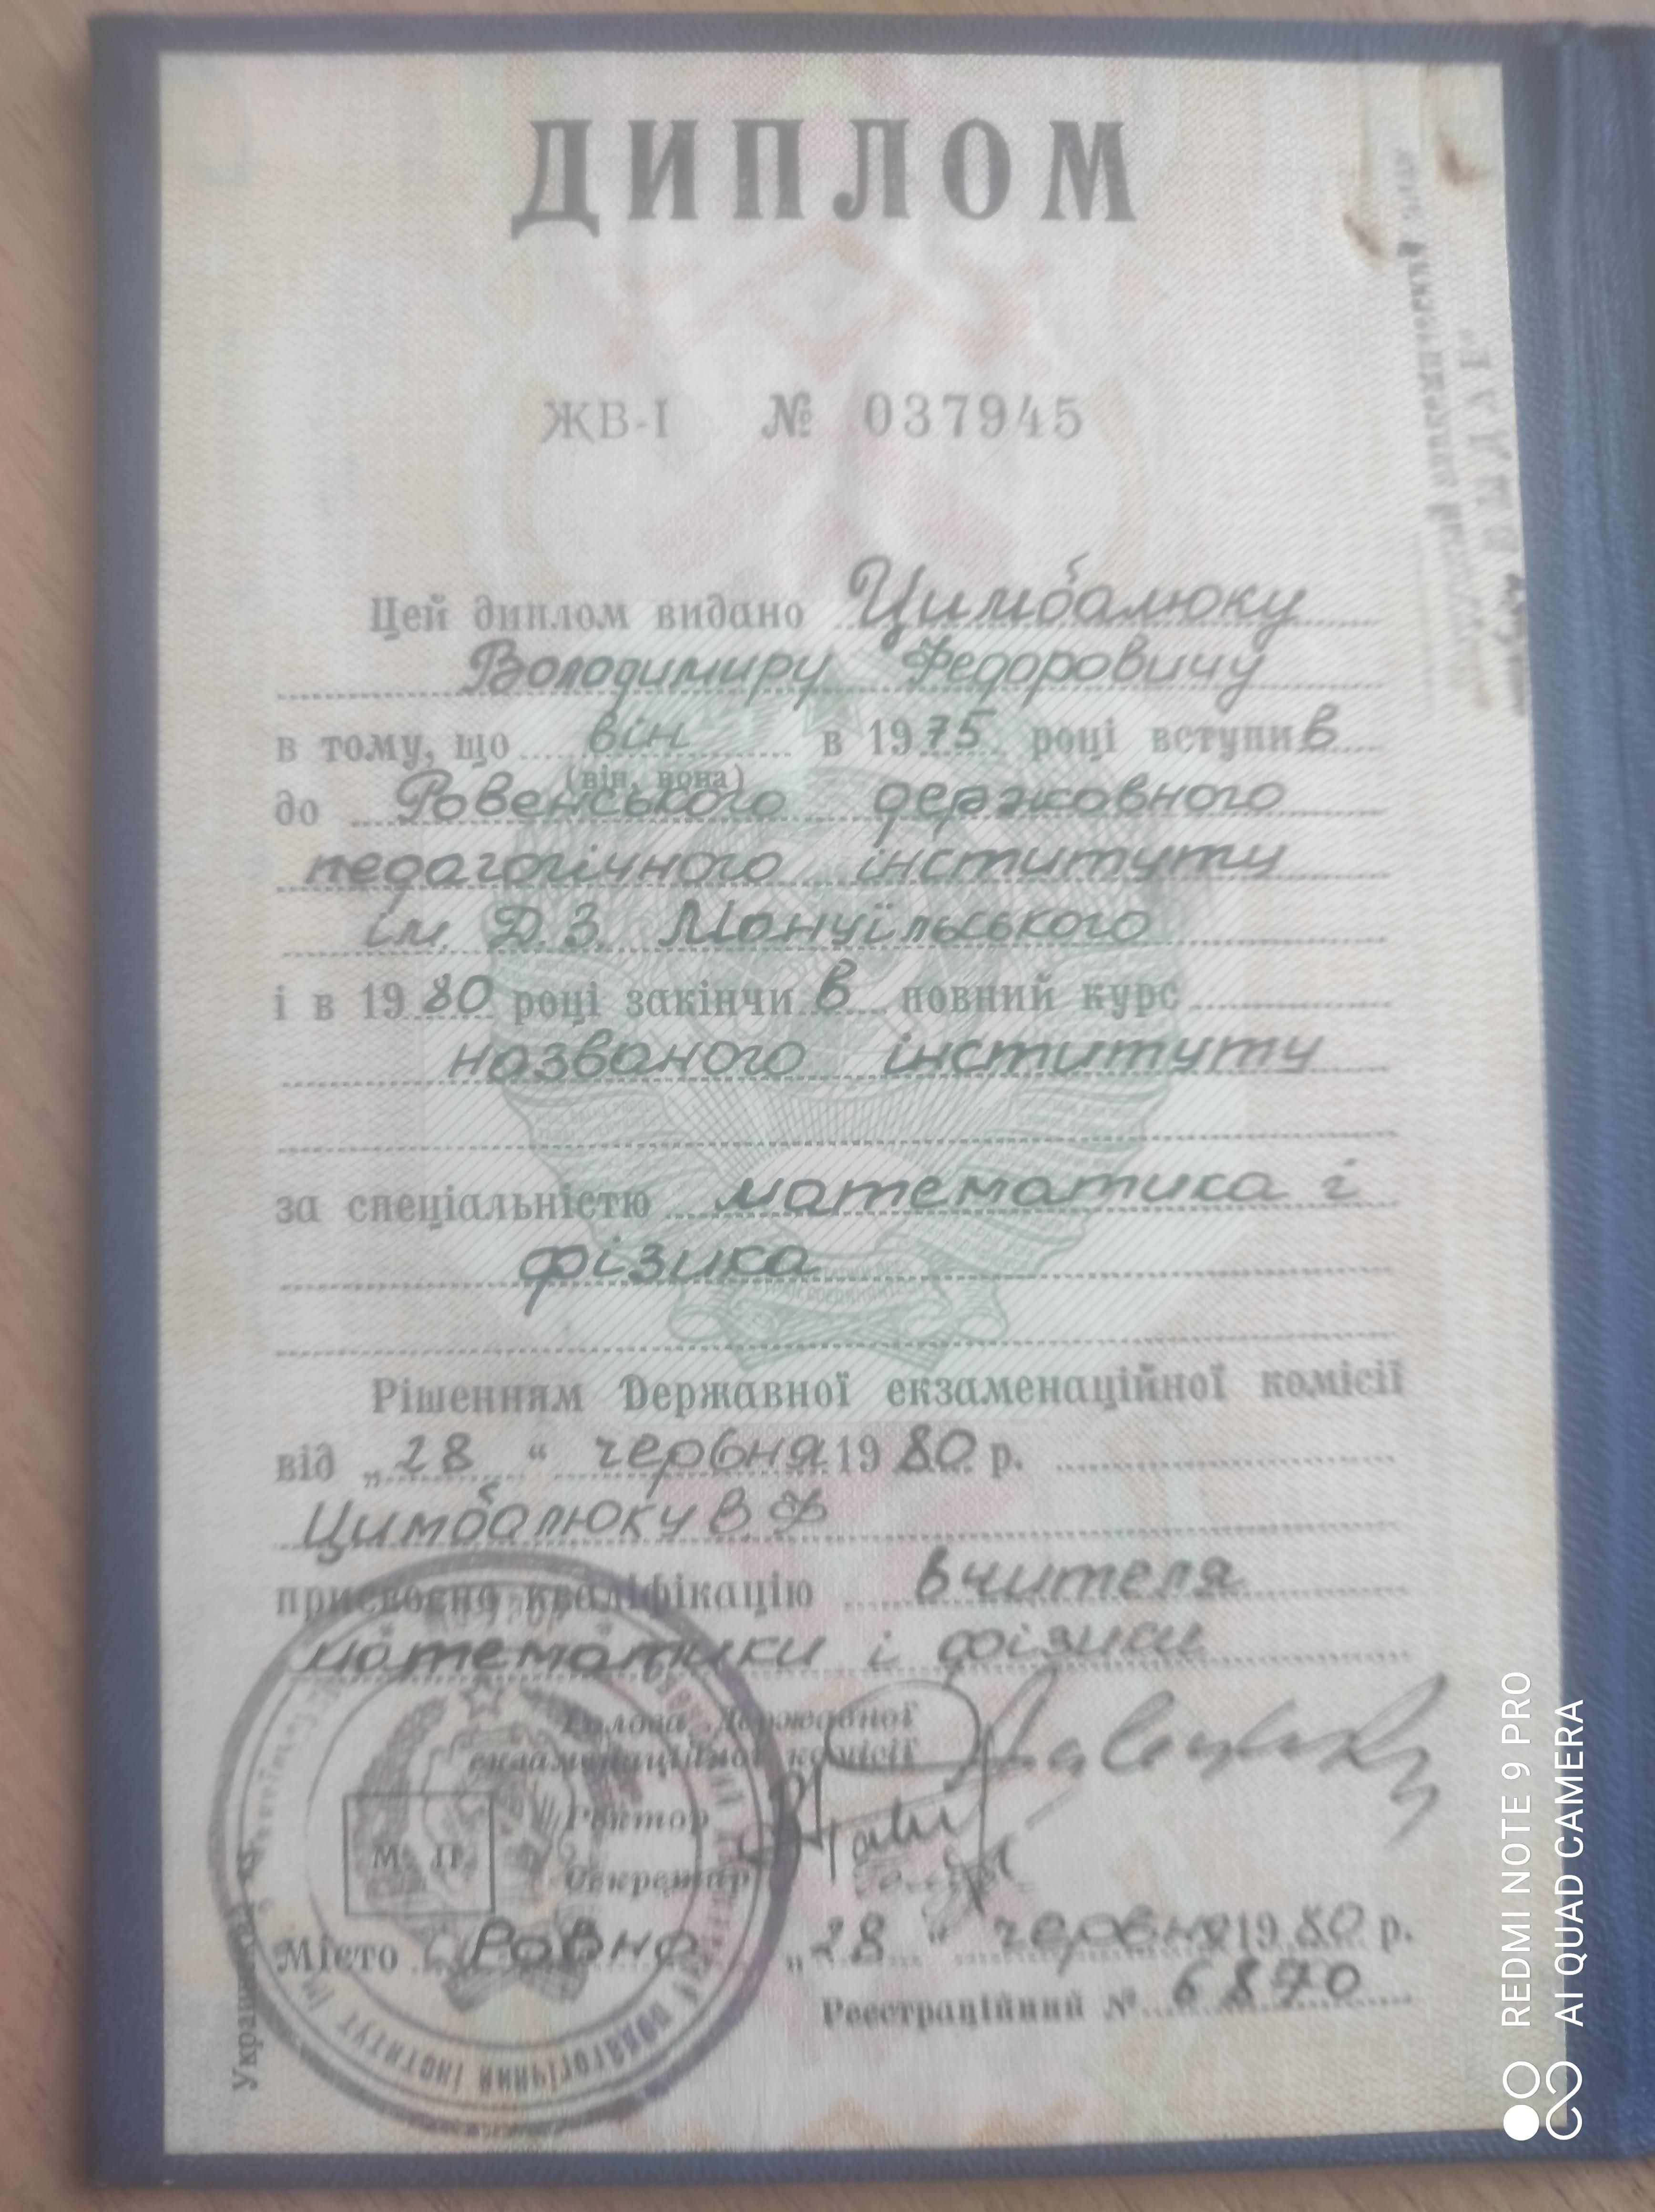 ДИПЛОМ
ЖВ-І № 037945
Цей диплом видано Цимбалюку
Володимиру Федоровичу
в тому, що він в 1975 році вступив
(він, вона)
до Ровенського державного
педагогічного інституту
ім. Д.З. Мануїльського
і в 1980 році закінчив повний курс
названого інституту
за спеціальністю математика і
фізика
Рішенням Державної екзаменаційної комісії
від „28“ червня 1980 р.
Цимбалюку В.Ф
присвоєно кваліфікацію вчителя
математики і фізики
Голова Державної
екзаменаційної комісії
Ректор
М. П.
Секретар
Місто Ровно „28“ червня 1980 р.
Реєстраційний № 6870
педагогічний інститут ім.
REDMI NOTE 9 PRO
AI QUAD CAMERA